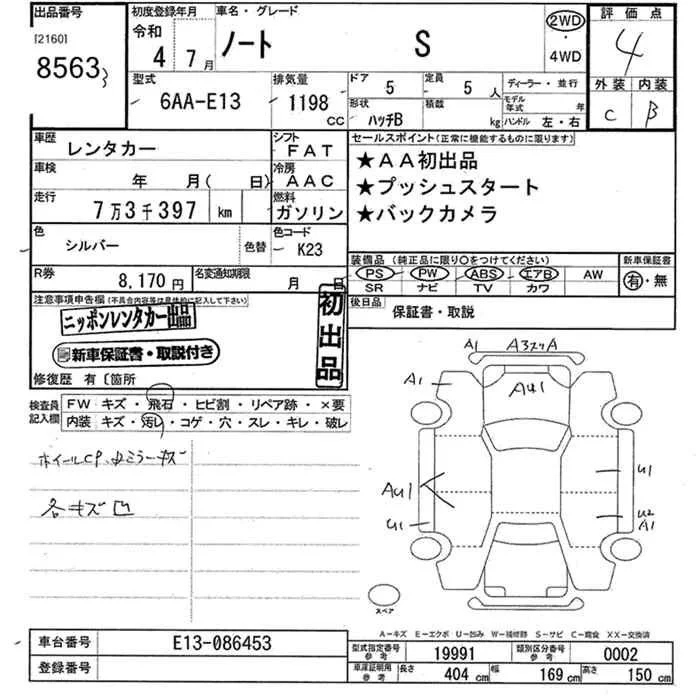 出品番号 初度登録年月 車名・グレード 2WD 評価点
[2160] 令和 ノート S ・ 4
8563 4 7月 4WD 外装 内装
C B
型式 排気量 ドア 定員 ディーラー・並行
6AA-E13 1198 cc 5 5人 モデル年式 年
形状 積載
ハッチB kg ハンドル 左・右
車歴 レンタカー シフト FAT セールスポイント(正常に機能するものに限ります)
車検 年 月( 日) 冷房 AAC ★AA初出品
★プッシュスタート
走行 7万3千397 km 燃料 ガソリン ★バックカメラ
色 シルバー 色替 色コード K23
装備品(純正品に限り○をつけてください) 新車保証書
R券 8,170円 名変通知期限 月 日 PS PW ABS エアB AW 有・無
SR ナビ TV カワ
注意事項申告欄(不具合内容等は具体的に記入して下さい) 初出品 後日品 保証書・取説
ニッポンレンタカー出品
新車保証書・取説付き
修復歴 有〔箇所
検査員記入欄 FW キズ・飛石・ヒビ割・リペア跡・×要
内装 キズ・汚レ・コゲ・穴・スレ・キレ・破レ
各キズ凹
A1 A
A1 AU1
AU1 U1
U1 U2
A1
スペア
A-キズ E-エクボ U-凹み W-補修跡 S-サビ C-腐食 XX-交換済
車台番号 E13-086453 型式指定番号 参考 19991 類別区分番号 参考 0002
登録番号 車庫証明用 参考 長さ 404 cm 幅 169 cm 高さ 150 cm